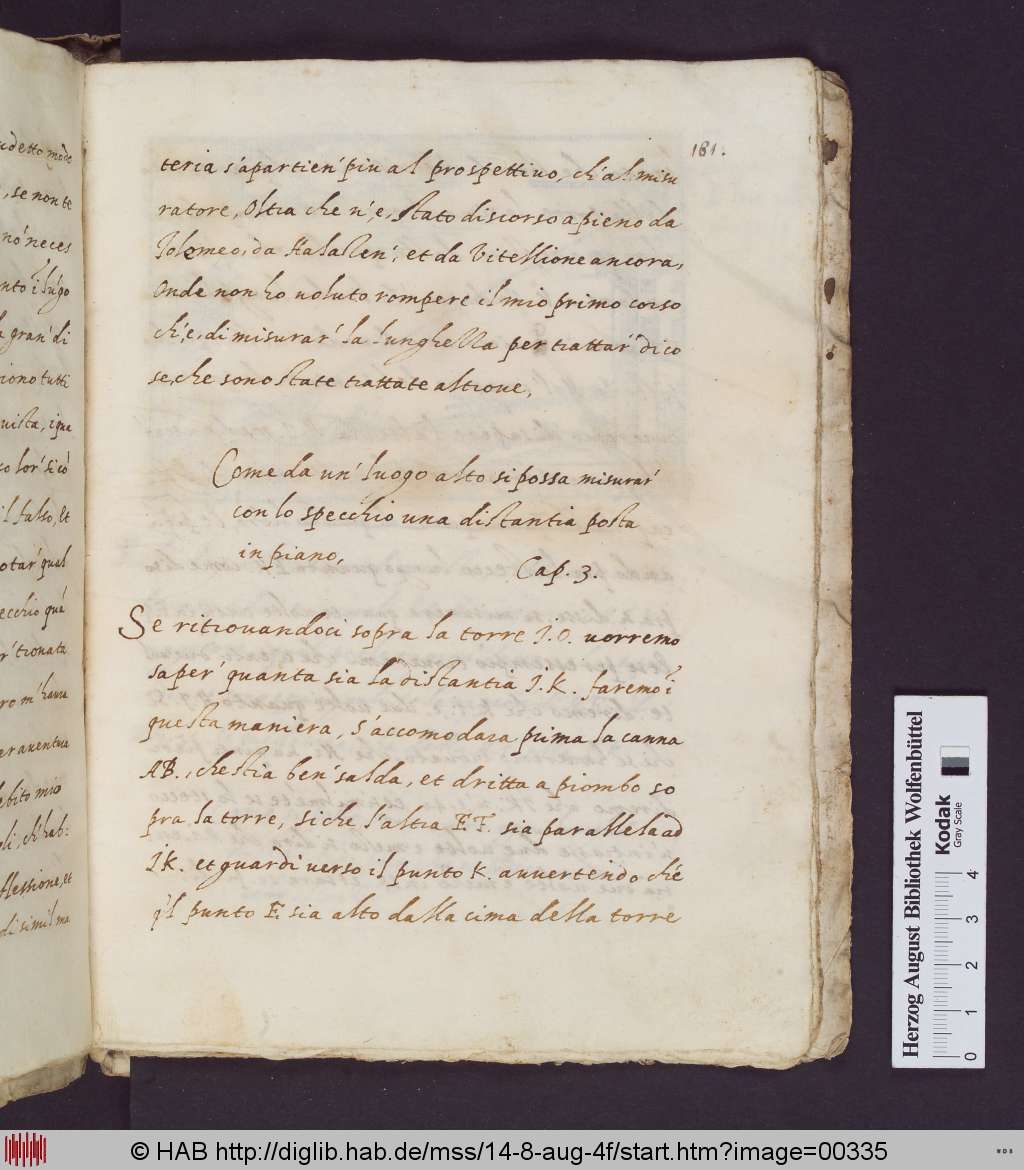 udetto mode
, se non te
nó neces
nto ī lugo
a gran' di
iono tutti
uista, i qua
co lor' si cō
il falso, Et
otar' qual
ecchio quā
r' tronata
ro m'haura
erauentura
ebito mio
oli, ch'hab:
flessione, et
di simil ma
181.
teria s'apartien' piu al prospettiuo, ch'al misu
ratore, Oltra che n'é, stato discorso a pieno da
Tolomeo, da Halazen', et da Vitellione ancora,
Onde non ho uoluto rompere il mio primo corso
ch'é, di misurar' la lunghezza per trattar' di co
se, che sono state trattate altroue,
Come da un' luogo alto si possa misurar'
con lo specchio una distantia posta
in piano,
Cap. 3.
Se ritrouandoci sopra la torre I.O. uorremo
saper' quanta sia la distantia I.K. faremo ī
questa maniera, s'accomodara prima la canna
AB., che stia ben' salda, et dritta a piombo so
pra la torre, si che l'altra E.F. sia parallela ad
I.K. et guardi uerso il punto K. auuertendo che
q'l punto E. sia alto dalla cima della torre
Herzog August Bibliothek Wolfenbüttel
Kodak
Gray Scale
0 1 2 3 4
© HAB http://diglib.hab.de/mss/14-8-aug-4f/start.htm?image=00335